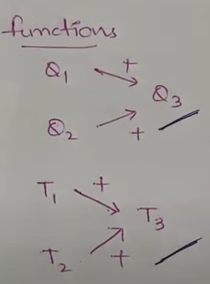 functions
Q₁ +
Q₃
Q₂ +
T₁ +
T₃
T₂ +